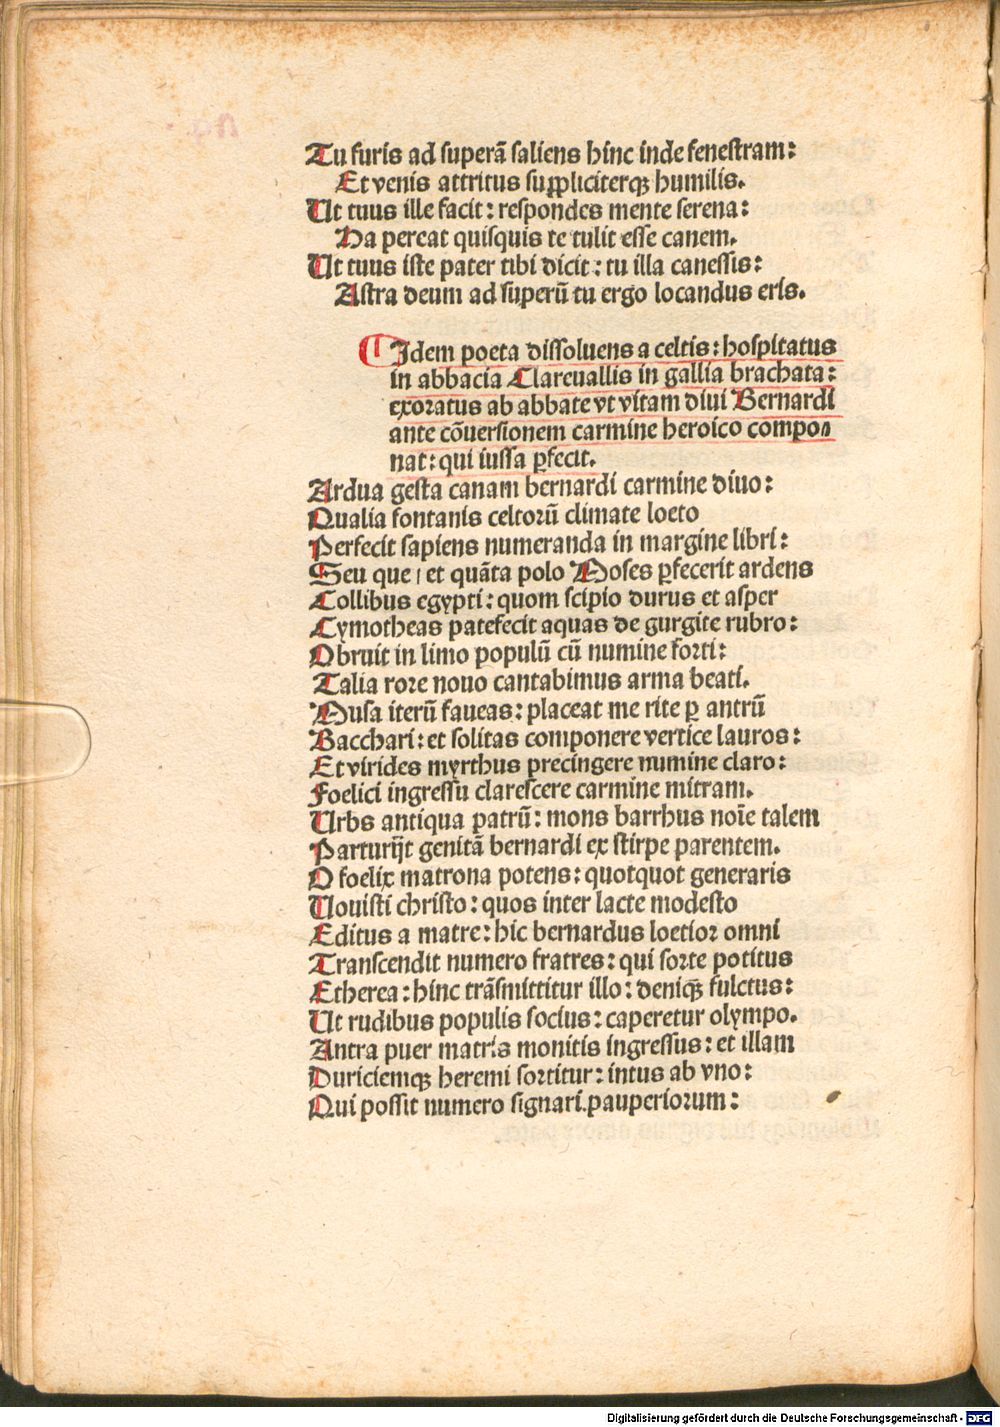 Tu furis ad superā saliens hinc inde fenestram:
Et venis attritus suppliciterqȝ humilis.
Ut tuus ille facit: respondes mente serena:
Ha pereat quisquis te tulit esse canem.
Ut tuus iste pater tibi dicit: tu illa canessis:
Astra deum ad superū tu ergo locandus eris.
Idem poeta dissoluens a celtis: hospitatus
in abbacia Clareuallis in gallia brachata:
exoratus ab abbate vt vitam diui Bernardi
ante cōuersionem carmine heroico compo⸗
nat: qui iussa ꝑfecit.
Ardua gesta canam bernardi carmine diuo:
Qualia fontanis celtorū climate loeto
Perfecit sapiens numeranda in margine libri:
Seu que / et quāta polo Moses ꝑfecerit ardens
Collibus egypti: quom scipio durus et asper
Cymotheas patefecit aquas de gurgite rubro:
Obruit in limo populū cū numine forti:
Talia rore nouo cantabimus arma beati.
Musa iterū faueas: placeat me rite ꝑ antrū
Bacchari: et solitas componere vertice lauros:
Et virides myrthus precingere numine claro:
Foelici ingressu clarescere carmine mitram.
Urbs antiqua patrū: mons barrhus noīe talem
Parturijt genitā bernardi ex stirpe parentem.
O foelix matrona potens: quotquot generaris
Nouisti christo: quos inter lacte modesto
Editus a matre: hic bernardus loetior omni
Transcendit numero fratres: qui sorte potitus
Etherea: hinc trāsmittitur illo: deniqȝ fulctus:
Ut rudibus populis socius: caperetur olympo.
Antra puer matris monitis ingressus: et illam
Duriciemqȝ heremi sortitur: intus ab vno:
Qui possit numero signari.pauperiorum:
Digitalisierung gefördert durch die Deutsche Forschungsgemeinschaft - DFG